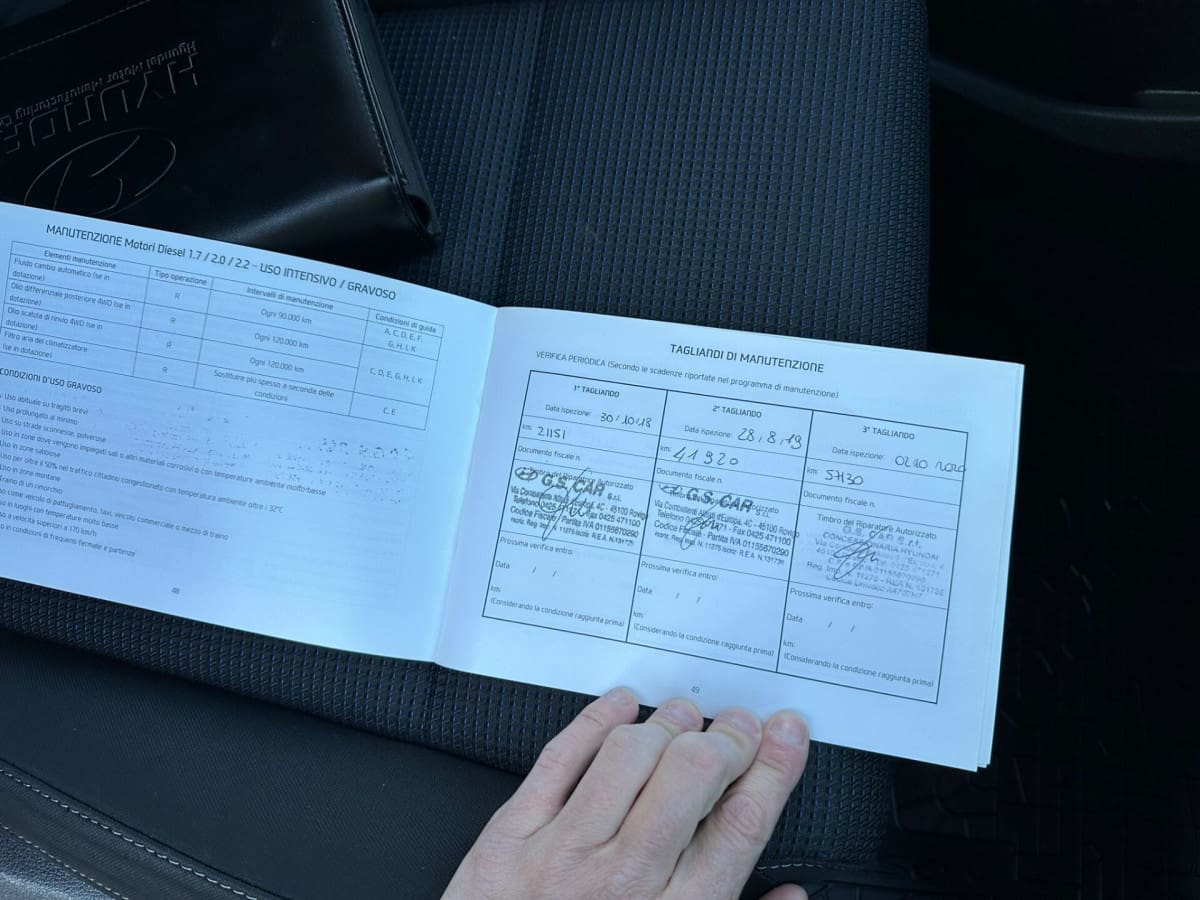 HYUNDAI
Hyundai Motor Manufacturing
MANUTENZIONE Motori Diesel 1.7 / 2.0 / 2.2 – USO INTENSIVO / GRAVOSO
Elementi manutenzione
Tipo operazione
Intervalli di manutenzione
Condizioni di guida
Fluido cambio automatico (se in
dotazione)
R
Ogni 90.000 km
A, C, D, E, F,
G, H, I, K
Olio differenziale posteriore 4WD (se in
dotazione)
R
Ogni 120.000 km
Olio scatola di rinvio 4WD (se in
dotazione)
R
Ogni 120.000 km
C, D, E, G, H, I, K
Filtro aria del climatizzatore
(se in dotazione)
R
Sostituire più spesso a seconda delle
condizioni
C, E
CONDIZIONI D'USO GRAVOSO
Uso abituale su tragitti brevi
Uso prolungato al minimo
Uso su strade sconnesse, polverose
Uso in zone dove vengono impiegati sali o altri materiali corrosivi o con temperature ambiente molto basse
Uso in zone sabbiose
Uso per oltre il 50% nel traffico cittadino congestionato con temperatura ambiente oltre i 32°C
Uso in zone montane
Traino di un rimorchio
Uso come veicolo di pattugliamento, taxi, veicolo commerciale o mezzo di traino
in luoghi con temperature molto basse
a velocità superiori a 170 km/h
in condizioni di frequenti fermate e partenze
48
TAGLIANDI DI MANUTENZIONE
VERIFICA PERIODICA (Secondo le scadenze riportate nel programma di manutenzione)
1° TAGLIANDO
Data ispezione: 30/10/18
km: 21151
Documento fiscale n.
Timbro del Riparatore Autorizzato
G.S. CAR S.r.l.
Via Combattenti Alleati d'Europa, 4C - 45100 Rovigo
Telefono 0425 - Fax 0425 471100
Codice Fiscale / Partita IVA 01155670290
Iscritz. Reg. Imp. N. 11275 Iscritz. R.E.A. N.131738
Prossima verifica entro:
Data / /
km:
(Considerando la condizione raggiunta prima)
2° TAGLIANDO
Data ispezione: 28,8,19
km: 41920
Documento fiscale n.
Timbro del Riparatore Autorizzato
G.S. CAR S.r.l.
Via Combattenti Alleati d'Europa, 4C - 45100 Rovigo
Telefono 0425 471 - Fax 0425 471100
Codice Fiscale - Partita IVA 01155670290
Iscritz. Reg. Imp. N. 11275 Iscritz. R.E.A. N.131738
Prossima verifica entro:
Data / /
km:
(Considerando la condizione raggiunta prima)
3° TAGLIANDO
Data ispezione: 0210 2020
km: 57130
Documento fiscale n.
Timbro del Riparatore Autorizzato
G.S. CAR S.r.l.
CONCESSIONARIA HYUNDAI
01155670290
Reg. Imp. N. 11275 - REA N. 131738
Prossima verifica entro:
Data / /
km:
(Considerando la condizione raggiunta prima)
49